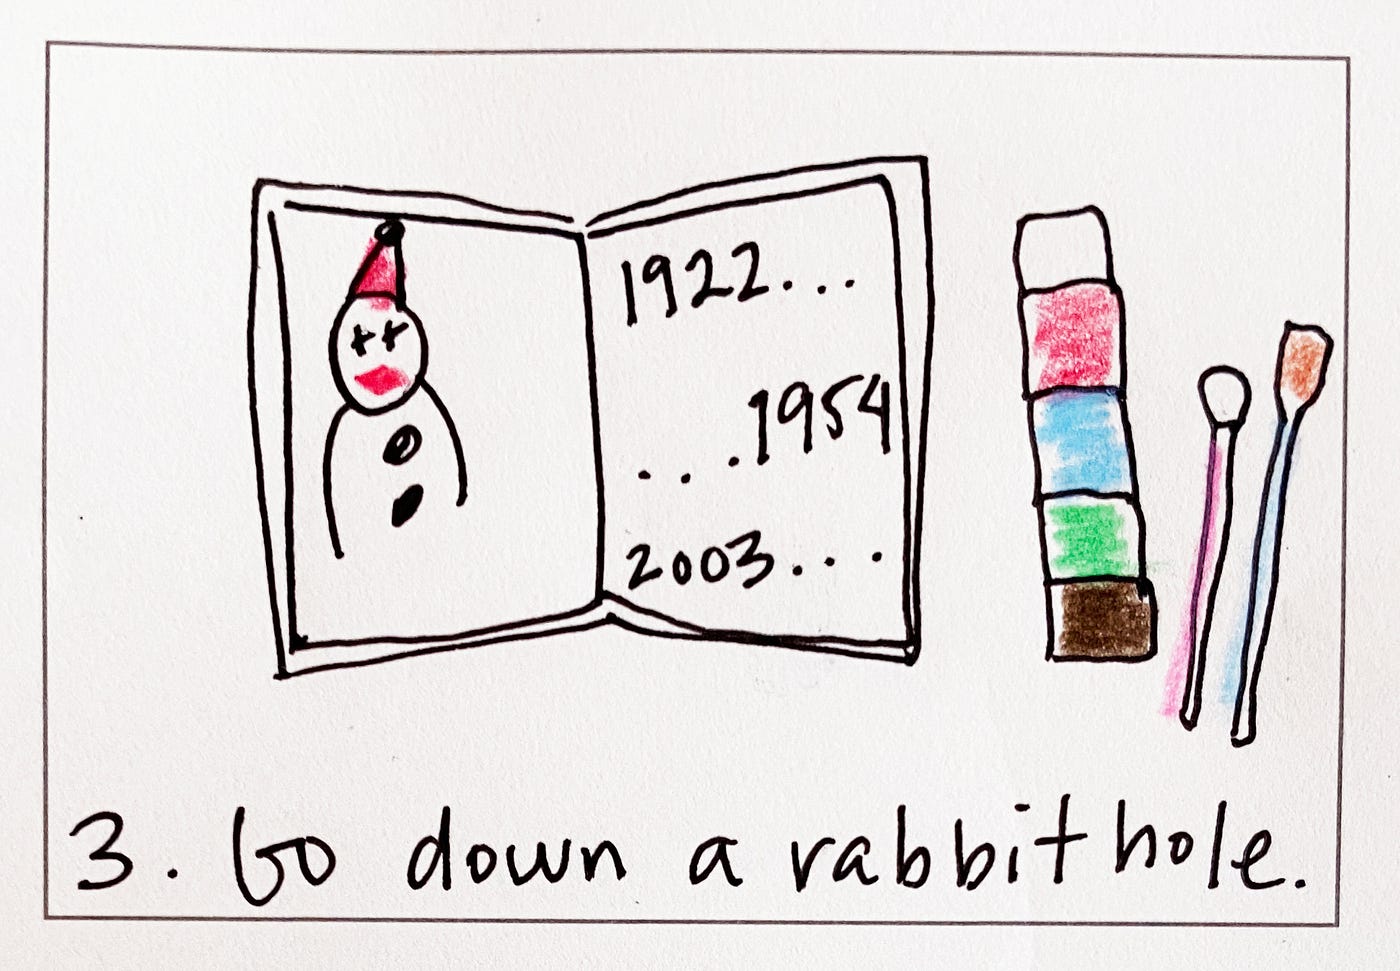 1922...
...1954
2003...
3. Go down a rabbit hole.